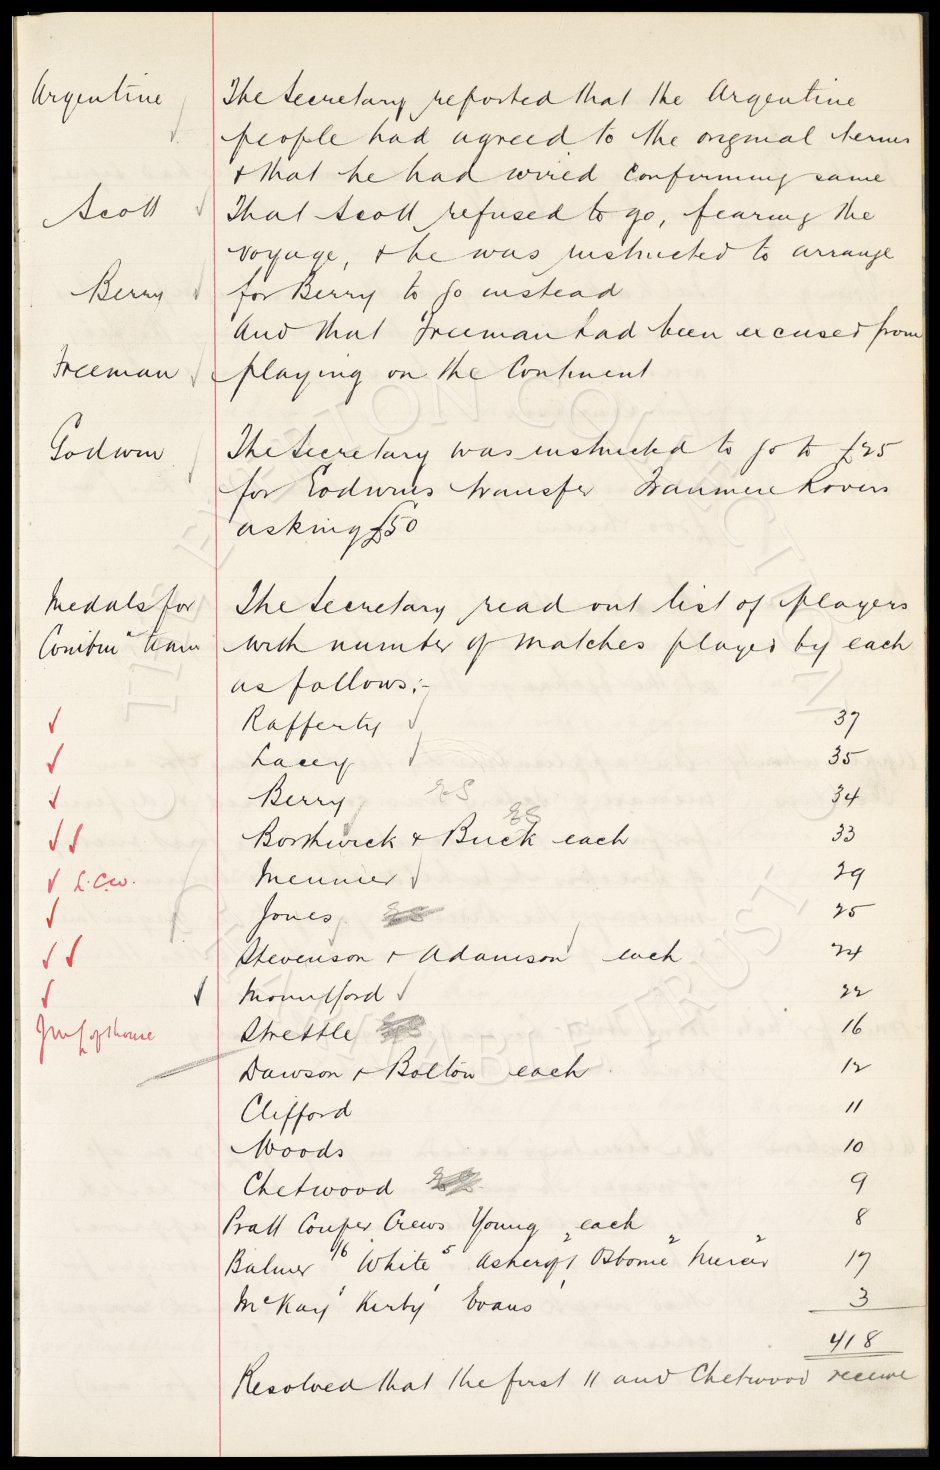 Argentine The Secretary reported that the Argentine
people had agreed to the original terms
& that he had wired confirming same
Scott That Scott refused to go, fearing the
voyage, & he was instructed to arrange
Berry for Berry to go instead
And that Freeman had been excused from
Freeman playing on the Continent
Godwin The Secretary was instructed to go to £25
for Godwins transfer Tranmere Rovers
asking £50
Medals for The Secretary read out list of players
Combinn team with number of matches played by each
as follows:-
Rafferty 37
Lacey 35
Berry 34
Borthwick & Buck each 33
L.C.W. Meunier 29
Jones 25
Stevenson & Adamson each 24
Mountford 22
Strettle 16
Dawson & Bolton each 12
Clifford 11
Woods 10
Chetwood 9
Pratt Couper Crews Young each 8
Balmer 6 White 5 Ashcroft 2 Osborne 2 Mercer 2 17
McKay 1 Kirby 1 Evans 1 3
418
Resolved that the first 11 and Chetwood receive
THE EVERTON COLLECTION
CHARITABLE TRUST